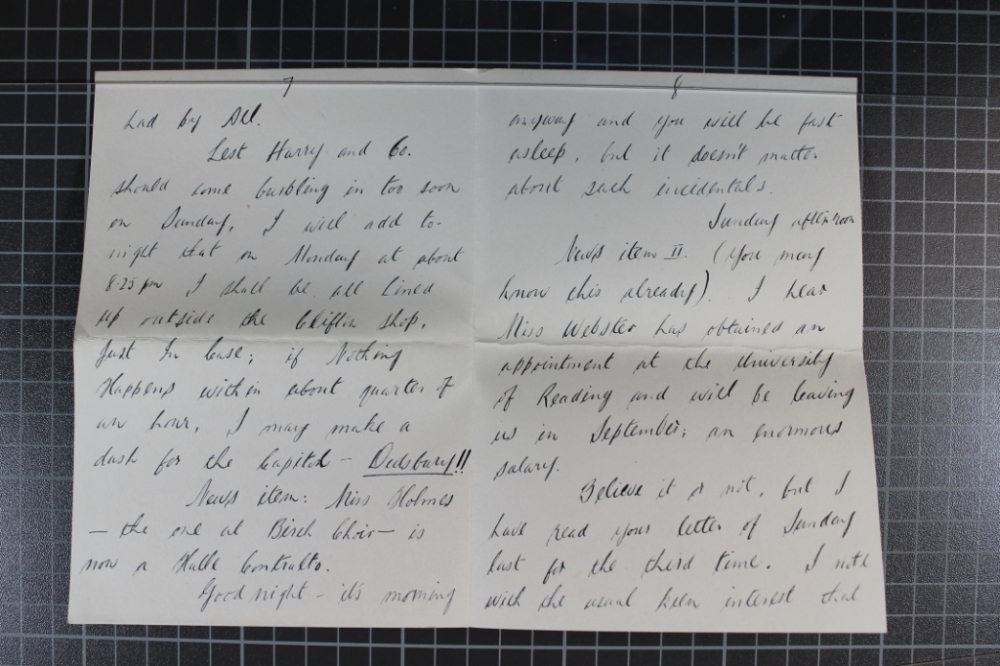 7
had by All.
Lest Harry and Co.
should come bursting in too soon
on Sunday, I will add to-
night that on Monday at about
8-25 pm I shall be all lined
up outside the Clifton shop,
Just In Case; if Nothing
Happens within about quarter of
an hour, I may make a
dash for the Capitol – Didsbury!!
News item: Miss Holmes
– the one at Birch Choir – is
now a Halle Contralto.
Good night – it's morning
8
anyway and you will be fast
asleep, but it doesn't matter
about such incidentals.
Sunday afternoon
News item II. (You may
know this already). I hear
Miss Webster has obtained an
appointment at the University
of Reading and will be leaving
us in September; an enormous
salary.
Believe it or not, but I
have read your letter of Sunday
last for the third time. I note
with the usual keen interest that